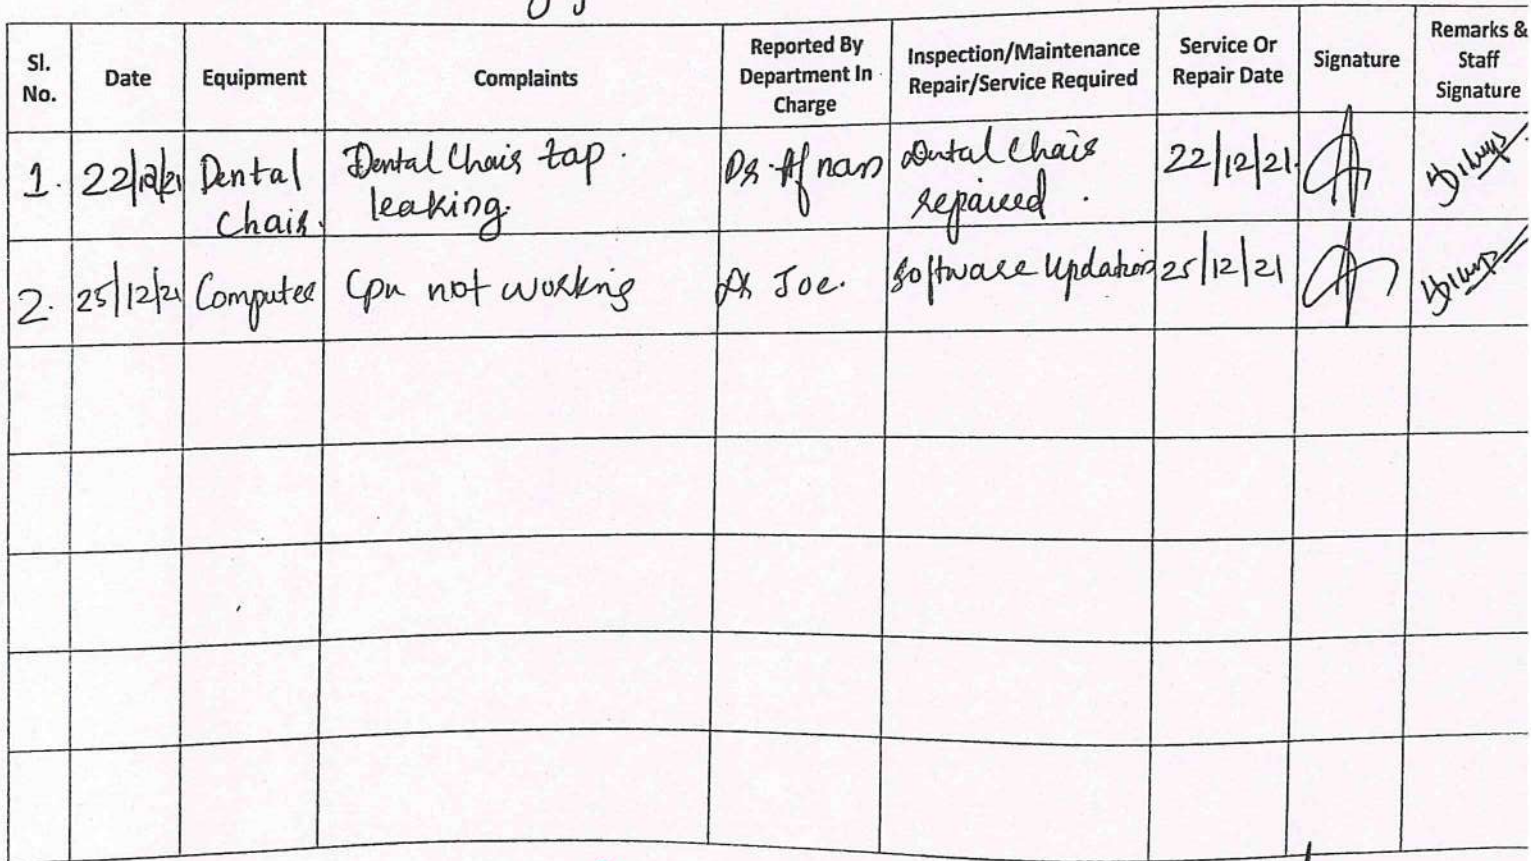 Sl. No.
Date
Equipment
Complaints
Reported By Department In Charge
Inspection/Maintenance Repair/Service Required
Service Or Repair Date
Signature
Remarks & Staff Signature
1. 22/12/21 Dental Chair. Dental Chair tap. leaking. Dr. Afnan Dental Chair repaired. 22/12/21.
2. 25/12/21 Computer Cpu not working Dr Joe. Software Updation 25/12/21